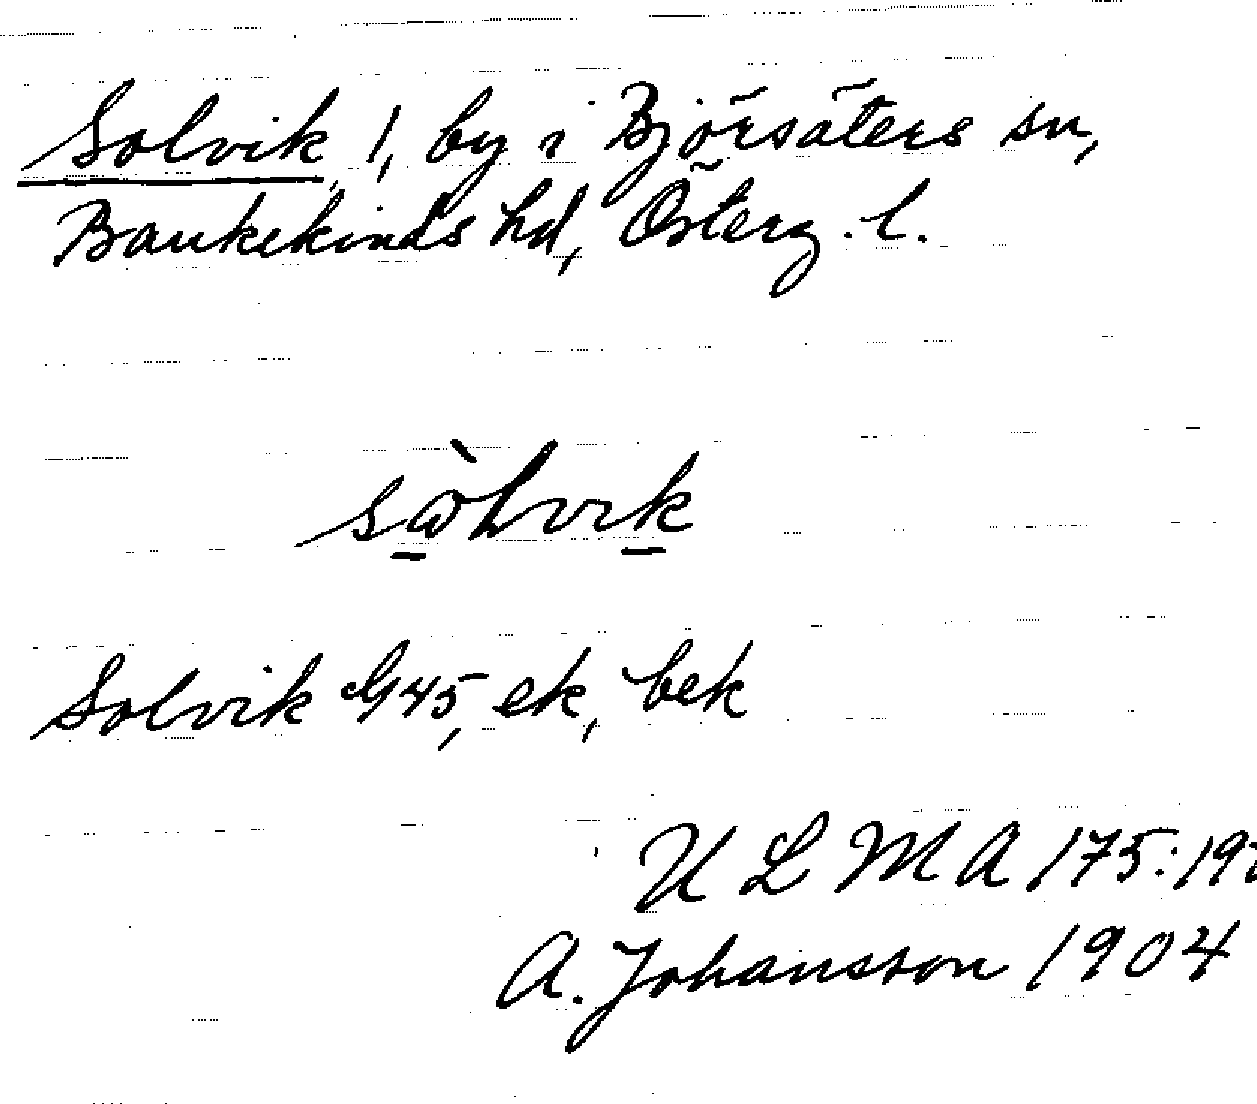 Solvik 1, by i Björsäters sn,
Bankekinds hd, Österg. l.
Solvik G45, ek, bek
U L M A 175:197
A. Johansson 1904